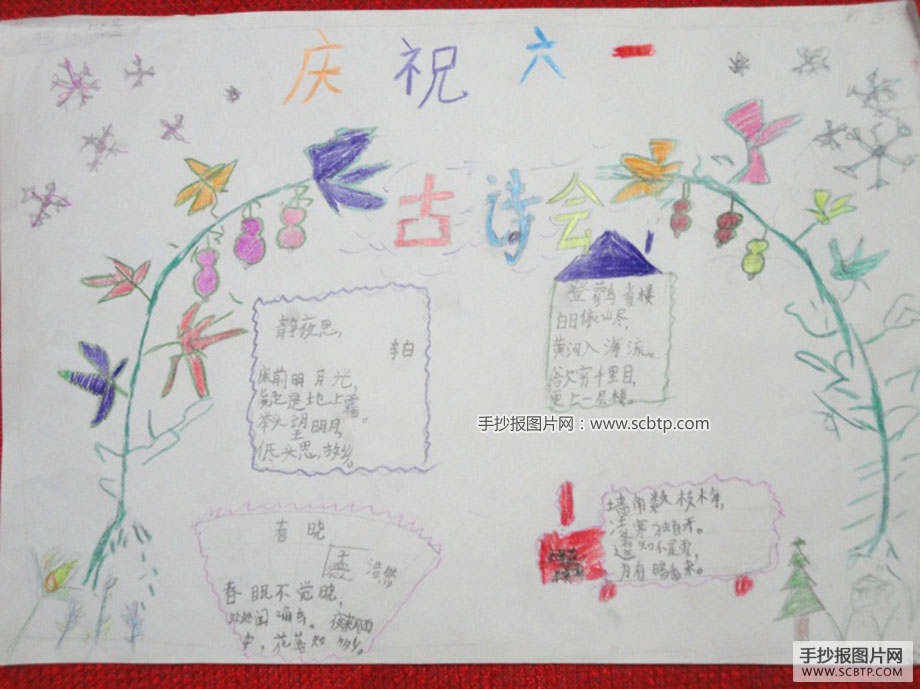 庆祝六一
古诗会
静夜思,
李白
床前明月光,
疑是地上霜。
举头望明月
低头思,故乡。
登鹳雀楼
白日依山尽,
黄河入海流。
欲穷千里目
更上一层楼。
手抄报图片网:www.scbtp.com
春晓
孟浩然
春眠不觉晓,
处处闻啼鸟。夜来风雨
声,花落知多少。
墙角数枝梅,
凌寒独自开。
遥知不是雪,
为有暗香来。
手抄报图片网
WWW.SCBTP.COM